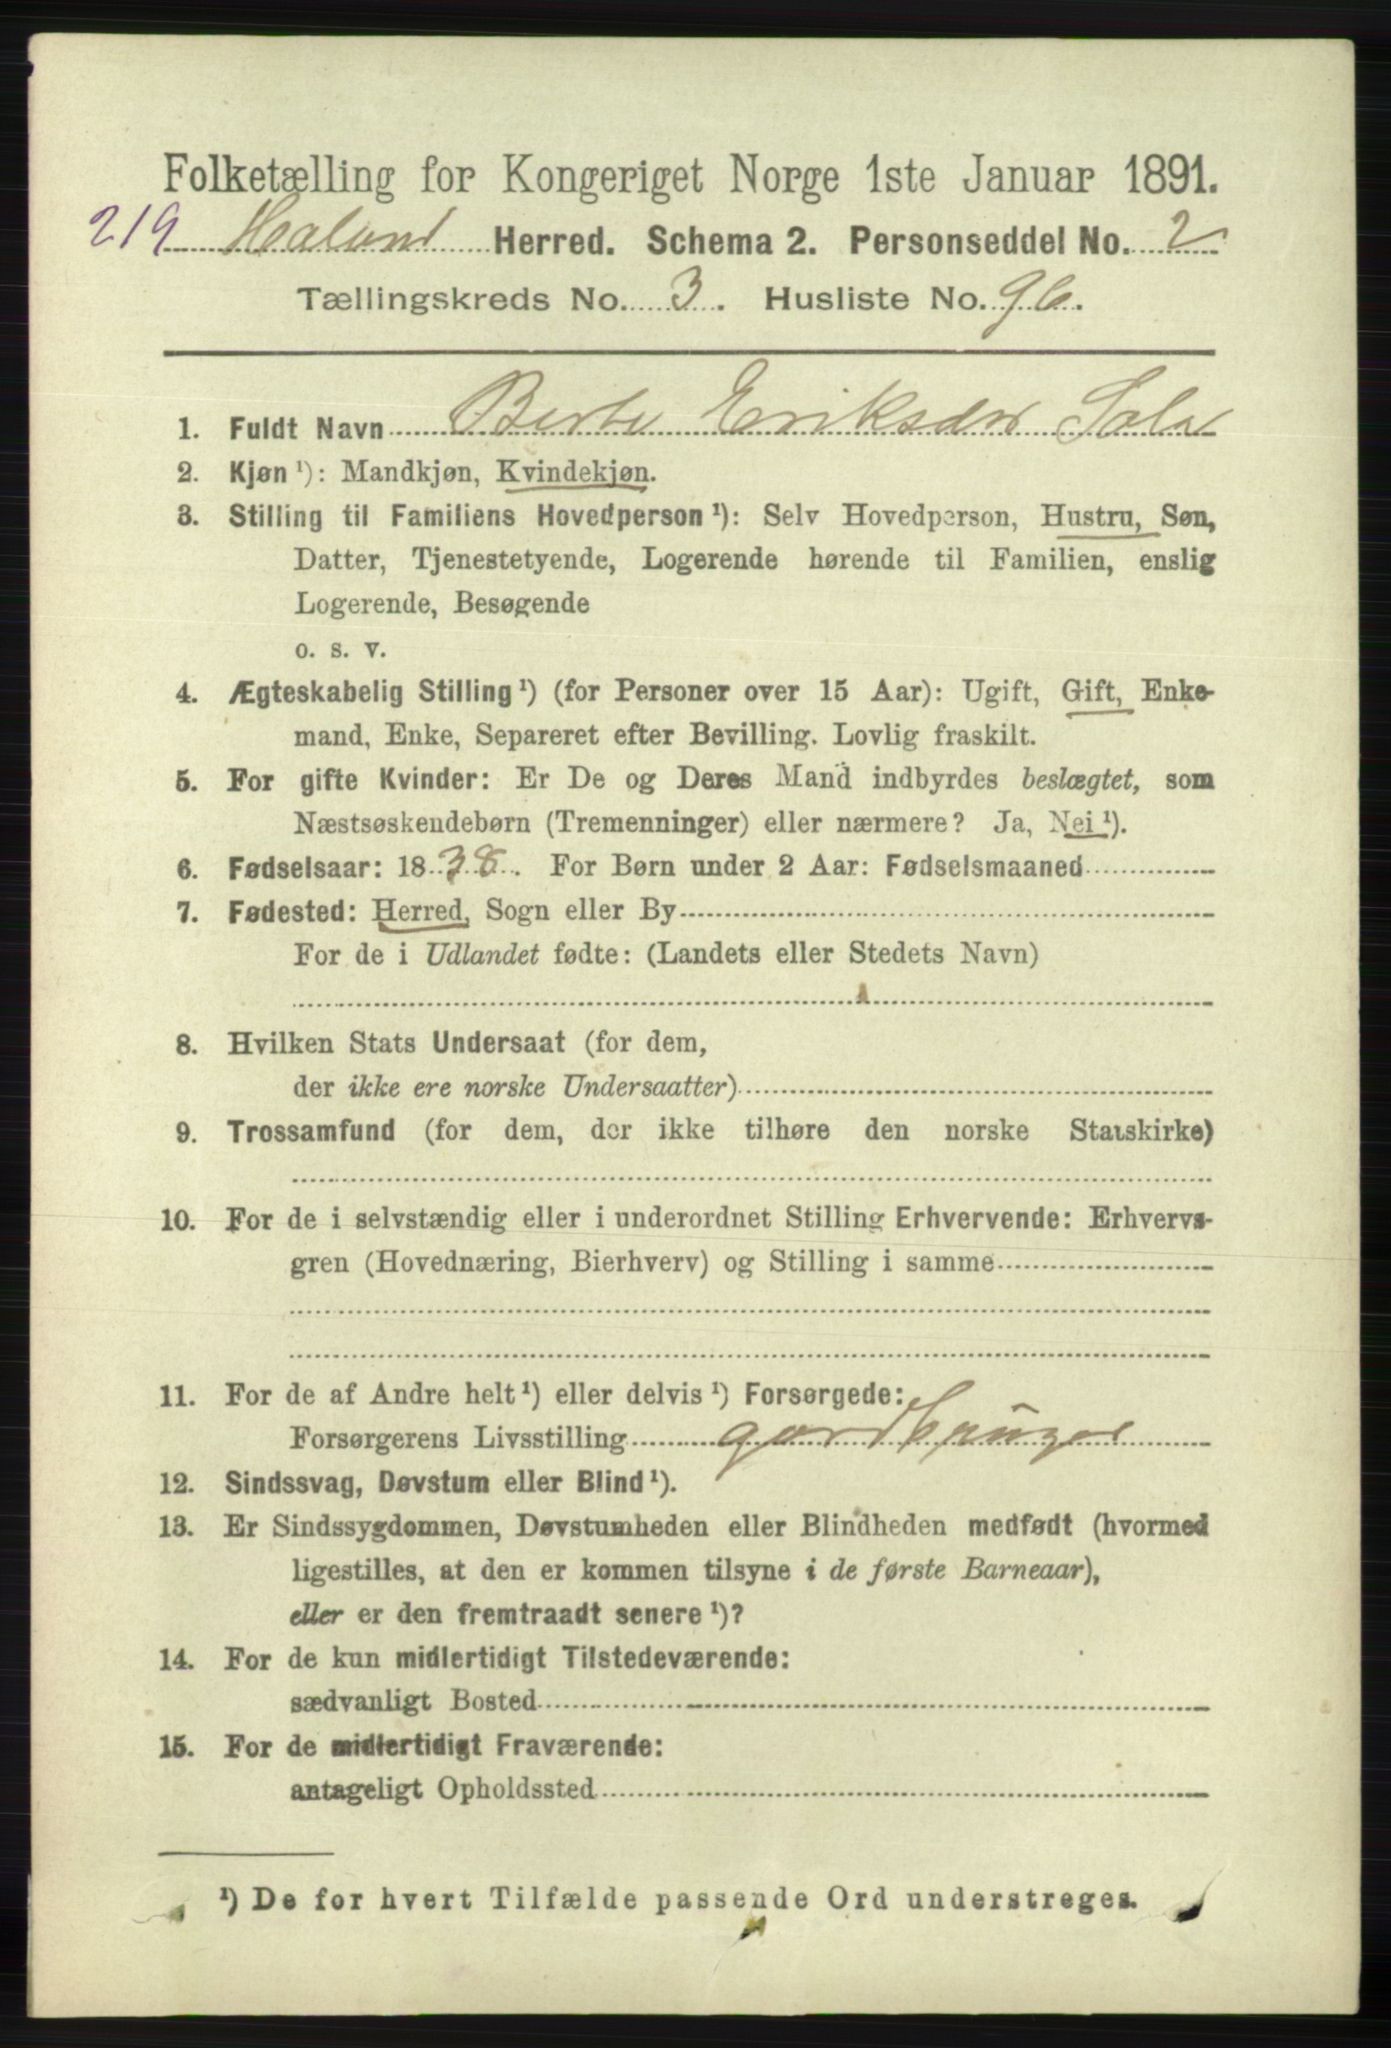 Folketælling for Kongeriget Norge 1ste Januar 1891.
219 Haland Herred. Schema 2. Personseddel No. 2
Tællingskreds No. 3. Husliste No. 96.
1. Fuldt Navn Berte Eriksdtr Sola
2. Kjøn ¹): Mandkjøn, Kvindekjøn.
3. Stilling til Familiens Hovedperson ¹): Selv Hovedperson, Hustru, Søn,
Datter, Tjenestetyende, Logerende hørende til Familien, enslig
Logerende, Besøgende
o. s. v.
4. Ægteskabelig Stilling ¹) (for Personer over 15 Aar): Ugift, Gift, Enke-
mand, Enke, Separeret efter Bevilling. Lovlig fraskilt.
5. For gifte Kvinder: Er De og Deres Mand indbyrdes beslægtet, som
Næstsøskendebørn (Tremenninger) eller nærmere? Ja, Nei ¹).
6. Fødselsaar: 1838. For Børn under 2 Aar: Fødselsmaaned
7. Fødested: Herred, Sogn eller By
For de i Udlandet fødte: (Landets eller Stedets Navn)
8. Hvilken Stats Undersaat (for dem,
der ikke ere norske Undersaatter)
9. Trossamfund (for dem, der ikke tilhøre den norske Statskirke)
10. For de i selvstændig eller i underordnet Stilling Erhvervende: Erhvervs-
gren (Hovednæring, Bierhverv) og Stilling i samme
11. For de af Andre helt ¹) eller delvis ¹) Forsørgede:
Forsørgerens Livsstilling gardbruger
12. Sindssvag, Døvstum eller Blind ¹).
13. Er Sindssygdommen, Døvstumheden eller Blindheden medfødt (hvormed
ligestilles, at den er kommen tilsyne i de første Barneaar),
eller er den fremtraadt senere ¹)?
14. For de kun midlertidigt Tilstedeværende:
sædvanligt Bosted
15. For de midlertidigt Fraværende:
antageligt Opholdssted
¹) De for hvert Tilfælde passende Ord understreges.